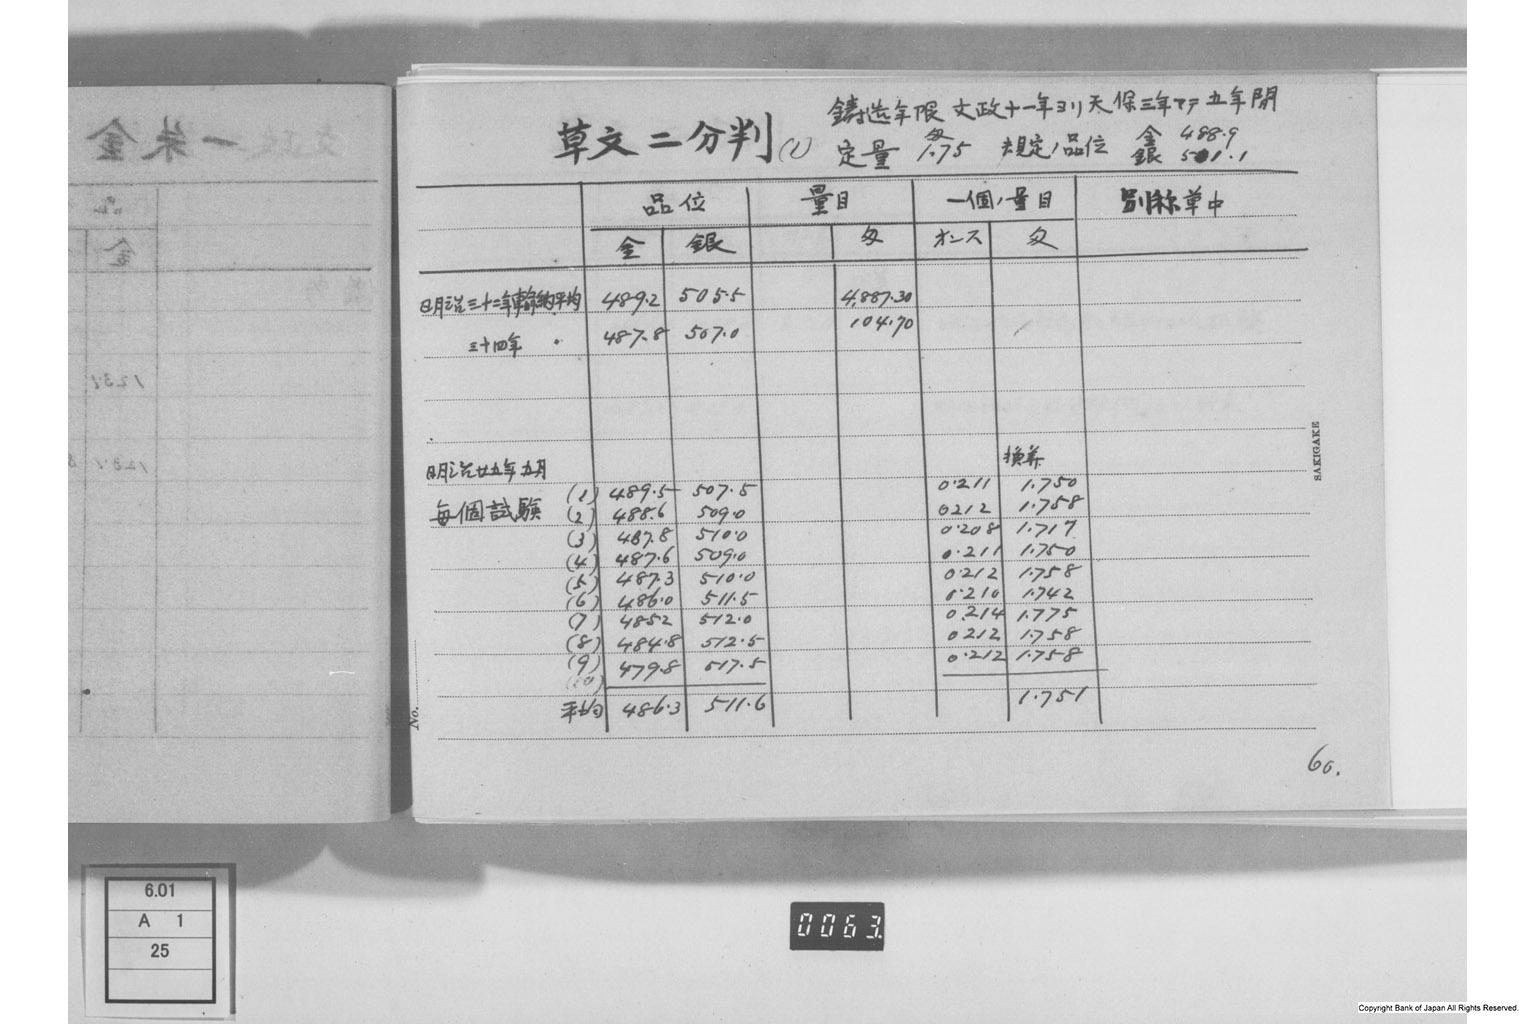 草文二分判 (1)
鋳造年限 文政十一年ヨリ天保三年マデ五年間
定量 匁 1.75 規定ノ品位 金 488.9 銀 501.1
品位 量目 一個ノ量目 別称草中
金 銀 匁 オンス 匁
明治三十二年輸納平均 489.2 505.5 4,887.30
三十四年 〃 487.8 507.0 104.70
明治廿五年五月 換算
毎個試験 (1) 489.5 507.5 0.211 1.750
(2) 488.6 509.0 0212 1.758
(3) 487.8 510.0 0.208 1.717
(4) 487.6 509.0 0.211 1.750
(5) 487.3 510.0 0.212 1.758
(6) 486.0 511.5 0.210 1.742
(7) 4852 512.0 0.214 1.775
(8) 484.8 512.5 0.212 1.758
(9) 479.8 517.5 0.212 1.758
(10)
平均 486.3 511.6 1.751
No.
SAKIGAKE
60.
文政一朱金
品
金
123.1
123.1
6.01
A 1
25
0063.
Copyright Bank of Japan All Rights Reserved.